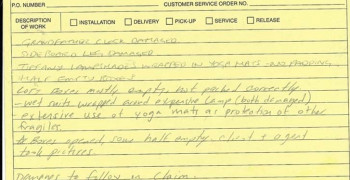 P.O. NUMBER CUSTOMER SERVICE ORDER NO.
DESCRIPTION OF WORK INSTALLATION DELIVERY PICK-UP SERVICE RELEASE
GRANDFATHER CLOCK DAMAGED
SIDEBOARD LEG DAMAGED
TIFFANY LAMPSHADES WRAPPED IN YOGA MATS AND
HALF EMPTY BOXES
boxes mostly empty, not packed correctly
- wet suits wrapped around expensive lamp (both damaged)
- extensive use of yoga mats as protection of other
fragiles.
# Boxes opened, some half empty. client + agent
took pictures.
Damages to follow on claim.